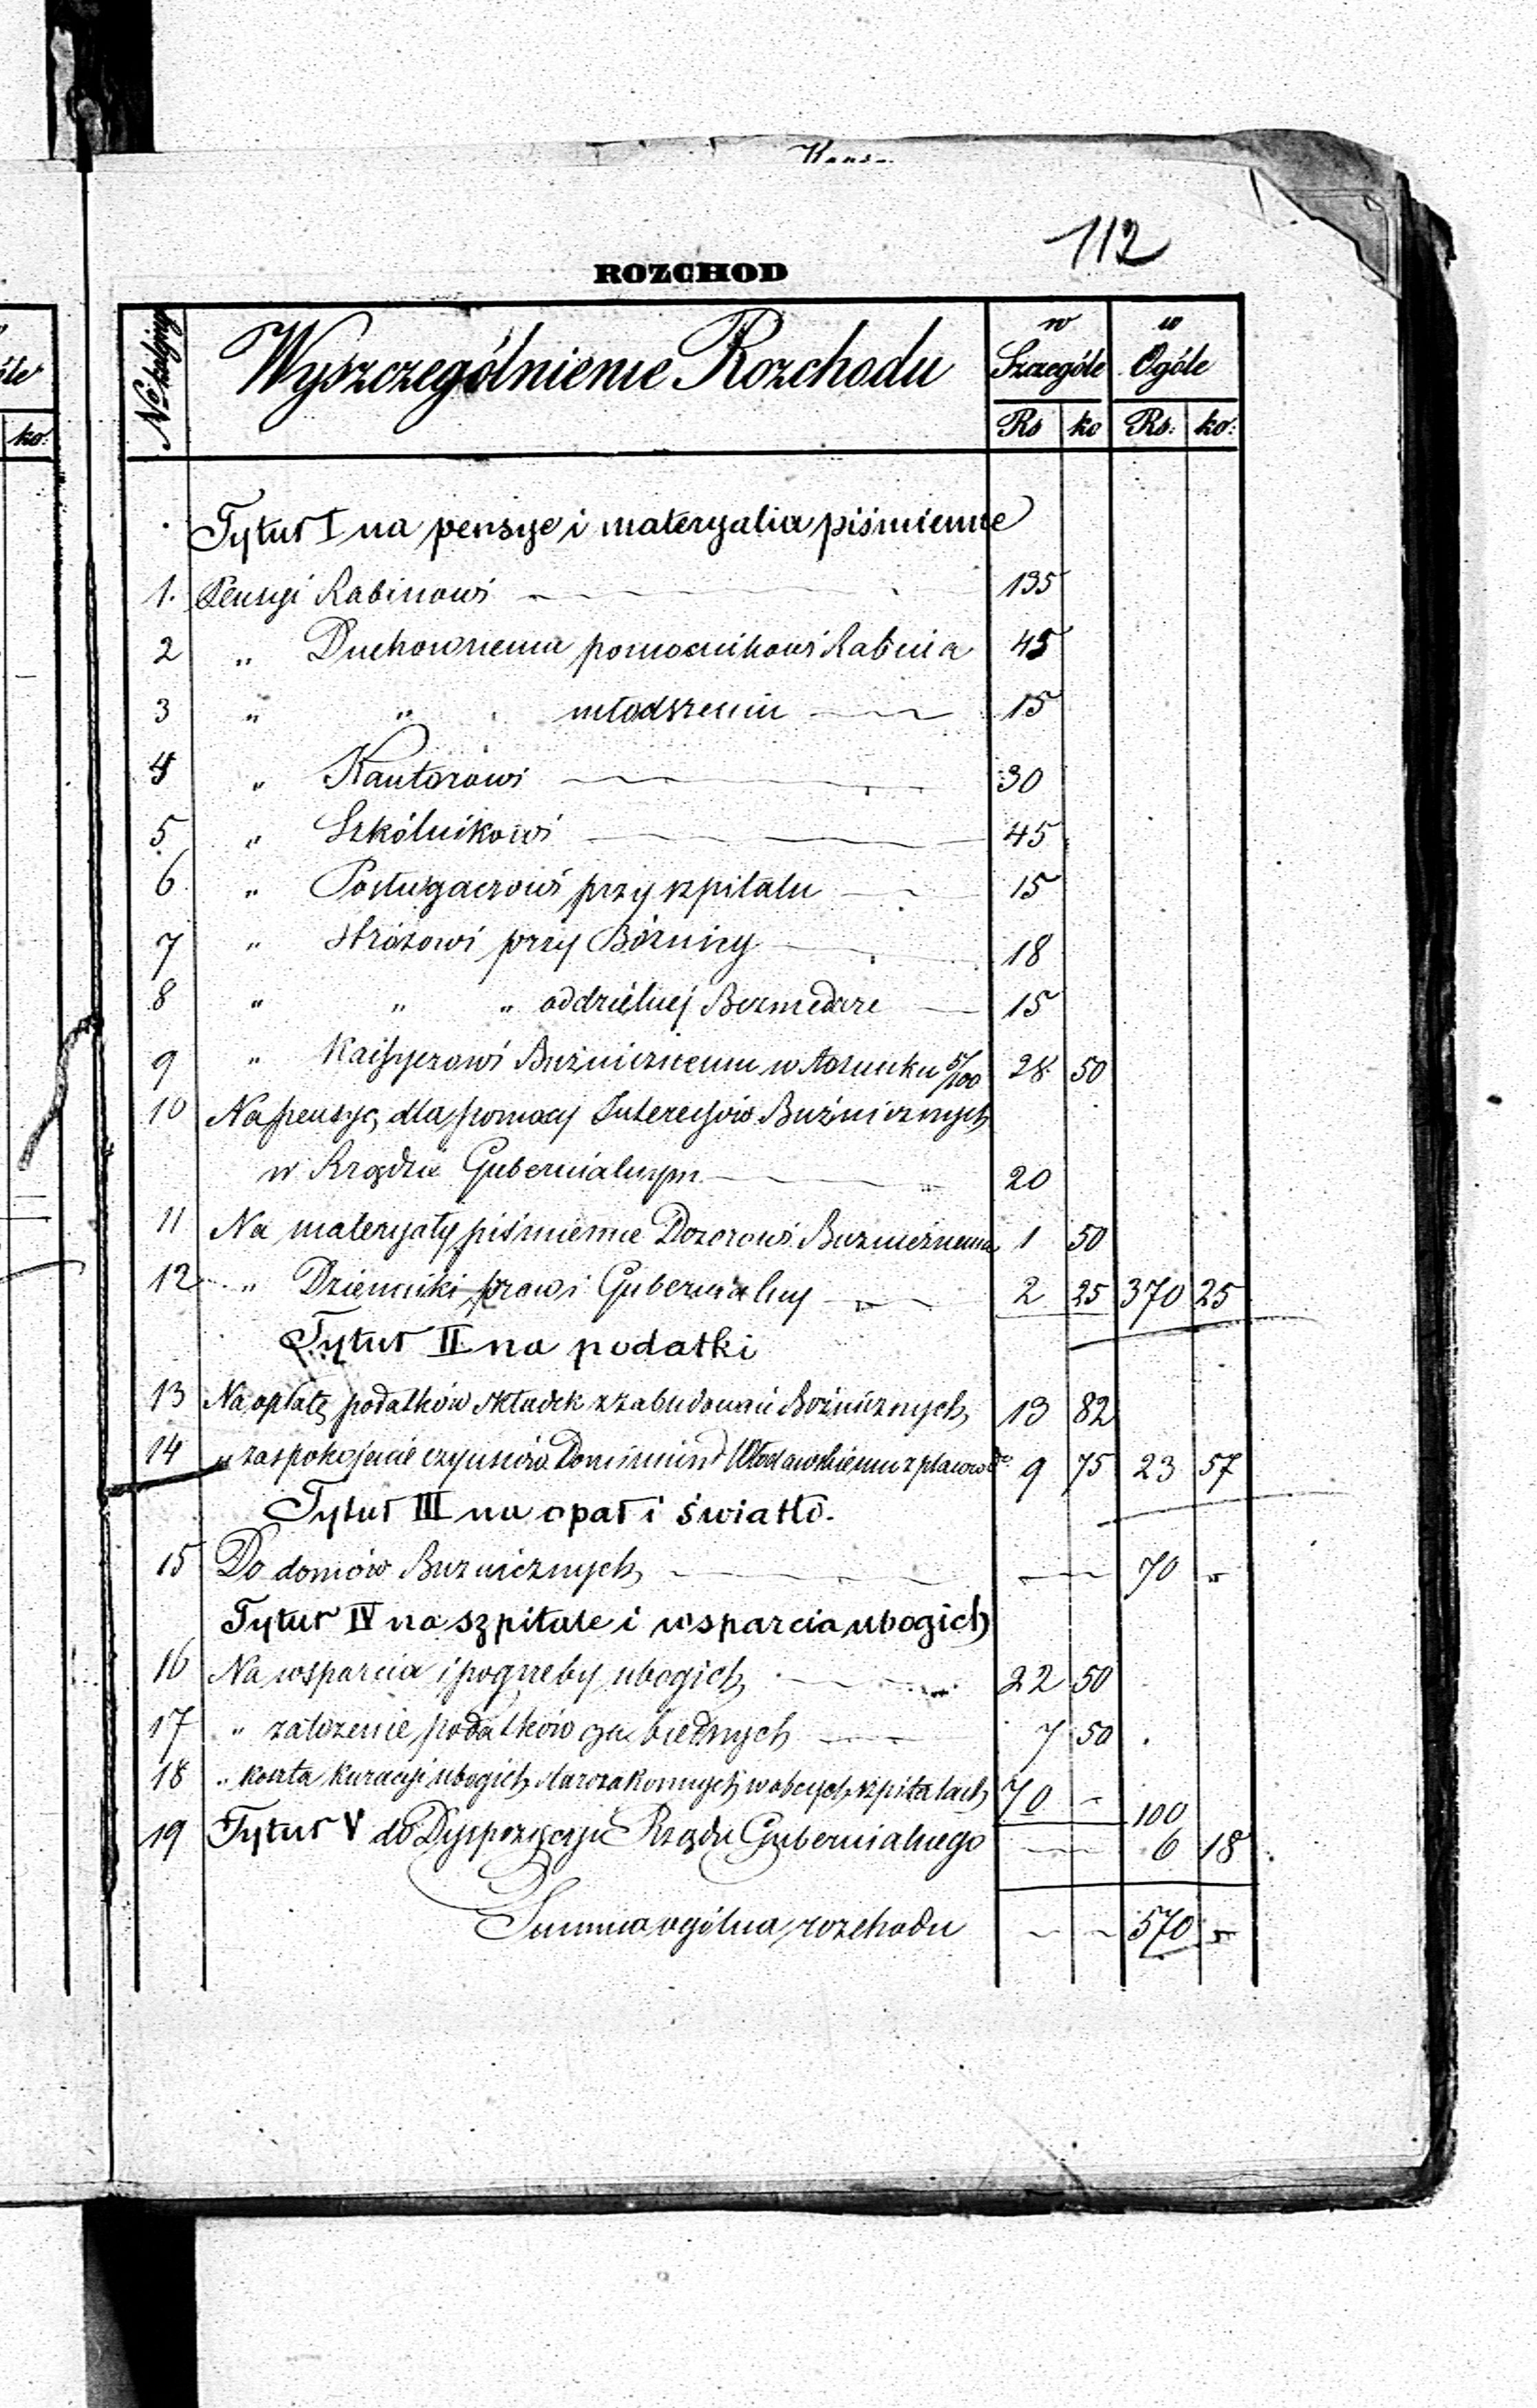 112
ROZCHOD
No kolejny Wyszczególnienie Rozchodu w Szczególe w Ogóle
Rs ko Rs: ko:
Tytuł I na pensye i materyalia piśmienne
1. Pensyi Rabinowi 135
2 " Duchownemu pomocnikowi Rabina 45
3 " " młodszemu 15
4 " Kantorowi 30
5 " Szkólnikowi 45
6 " Posługaczowi przy szpitalu 15
7 " Stróżowi przy Bóżnicy 18
8 " " " oddzielnej 15
9 " Kassyerowi Bużnicznemu w stosunku 5/100 28 50
10 Na pensyę dla pomocy Interessów Bużnicznych
w Rządzie Gubernialnym 20
11 Na materyały piśmienne Dozorowi Bużnicznemu 1 50
12 " Dzienniki praw i Gubernialny 2 25 370 25
Tytuł II na podatki
13 Na opłatę podatków składek z zabudowań Bożnicznych 13 82
14 " zaspokojenie czynszów Dominium Włodawskiemu z placów 9 75 23 57
Tytuł III na opał i światło.
15 Do domów Bużnicznych 70 "
Tytuł IV na szpitale i wsparcia ubogich
16 Na wsparcia i pogrzeby ubogich 22 50
17 " założenie podatków za biednych 7 50
18 " koszta kuracyi ubogich starozakonnych w obcych szpitalach 70 - 100
19 Tytuł V do Dyspozycyi Rządu Gubernialnego 6 18
Summa ogólna rozchodu 570 "
ko: